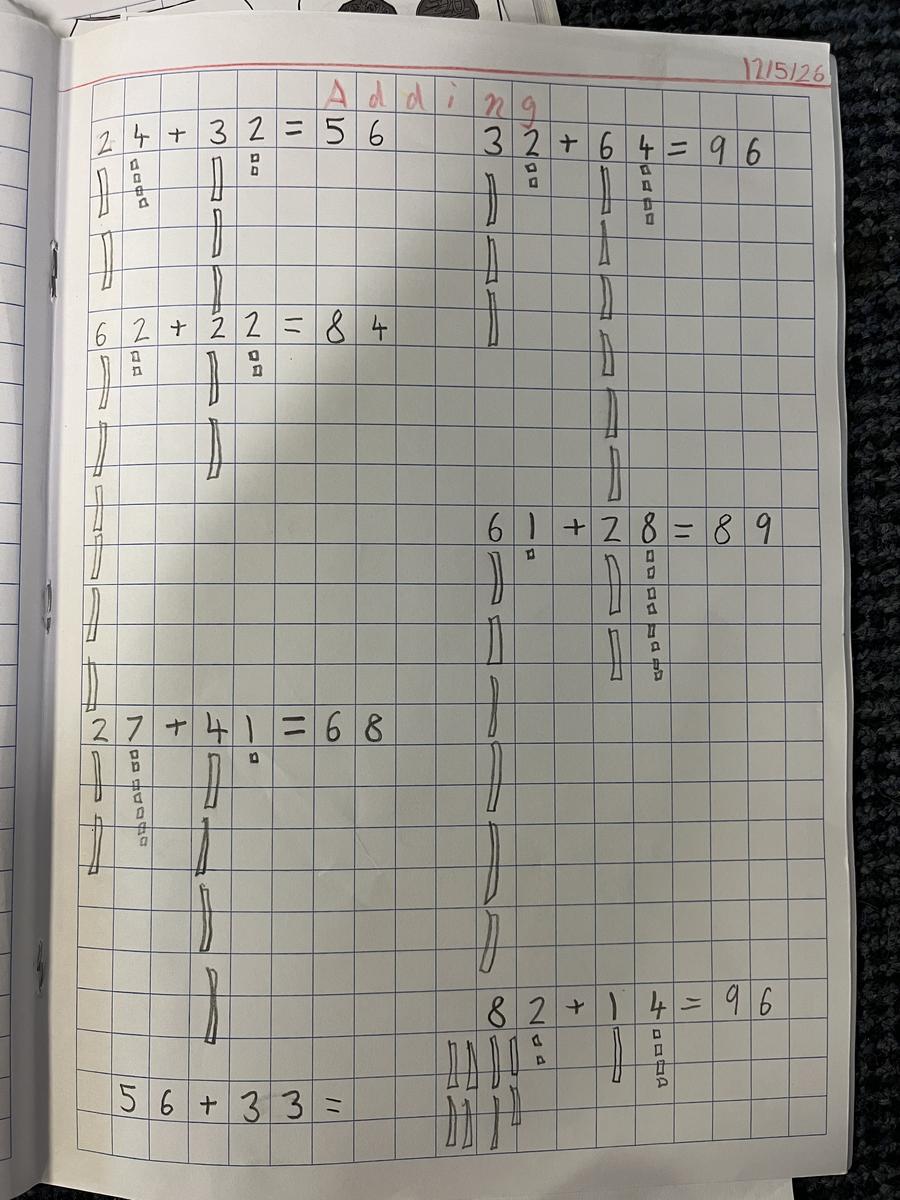 12/5/26
Adding
24+32=56
62+22=84
27+41=68
56+33=
32+64=96
61+28=89
82+14=96